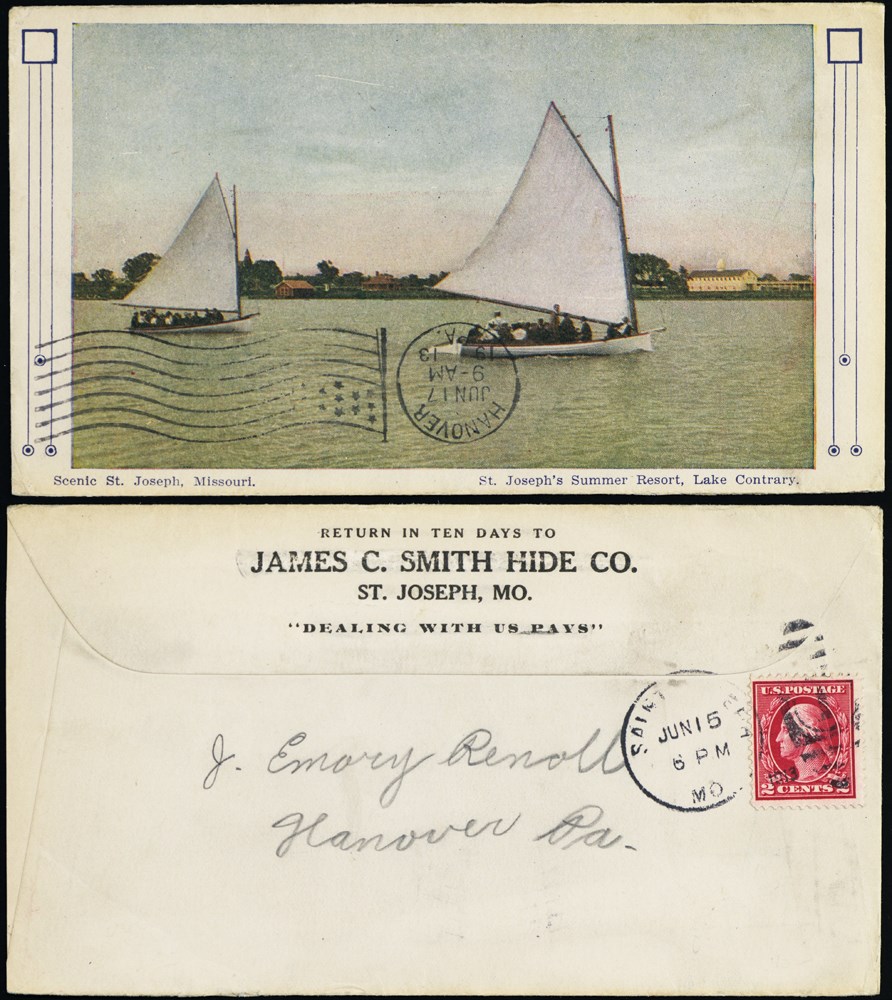 HANOVER
JUN 17
9-AM
1913
PA.
Scenic St. Joseph, Missouri.
St. Joseph's Summer Resort, Lake Contrary.
RETURN IN TEN DAYS TO
JAMES C. SMITH HIDE CO.
ST. JOSEPH, MO.
"DEALING WITH US PAYS"
SAINT
JUN 15
6 PM
MO.
U.S. POSTAGE
2 CENTS 2
J. Emory Renoll
Hanover Pa.